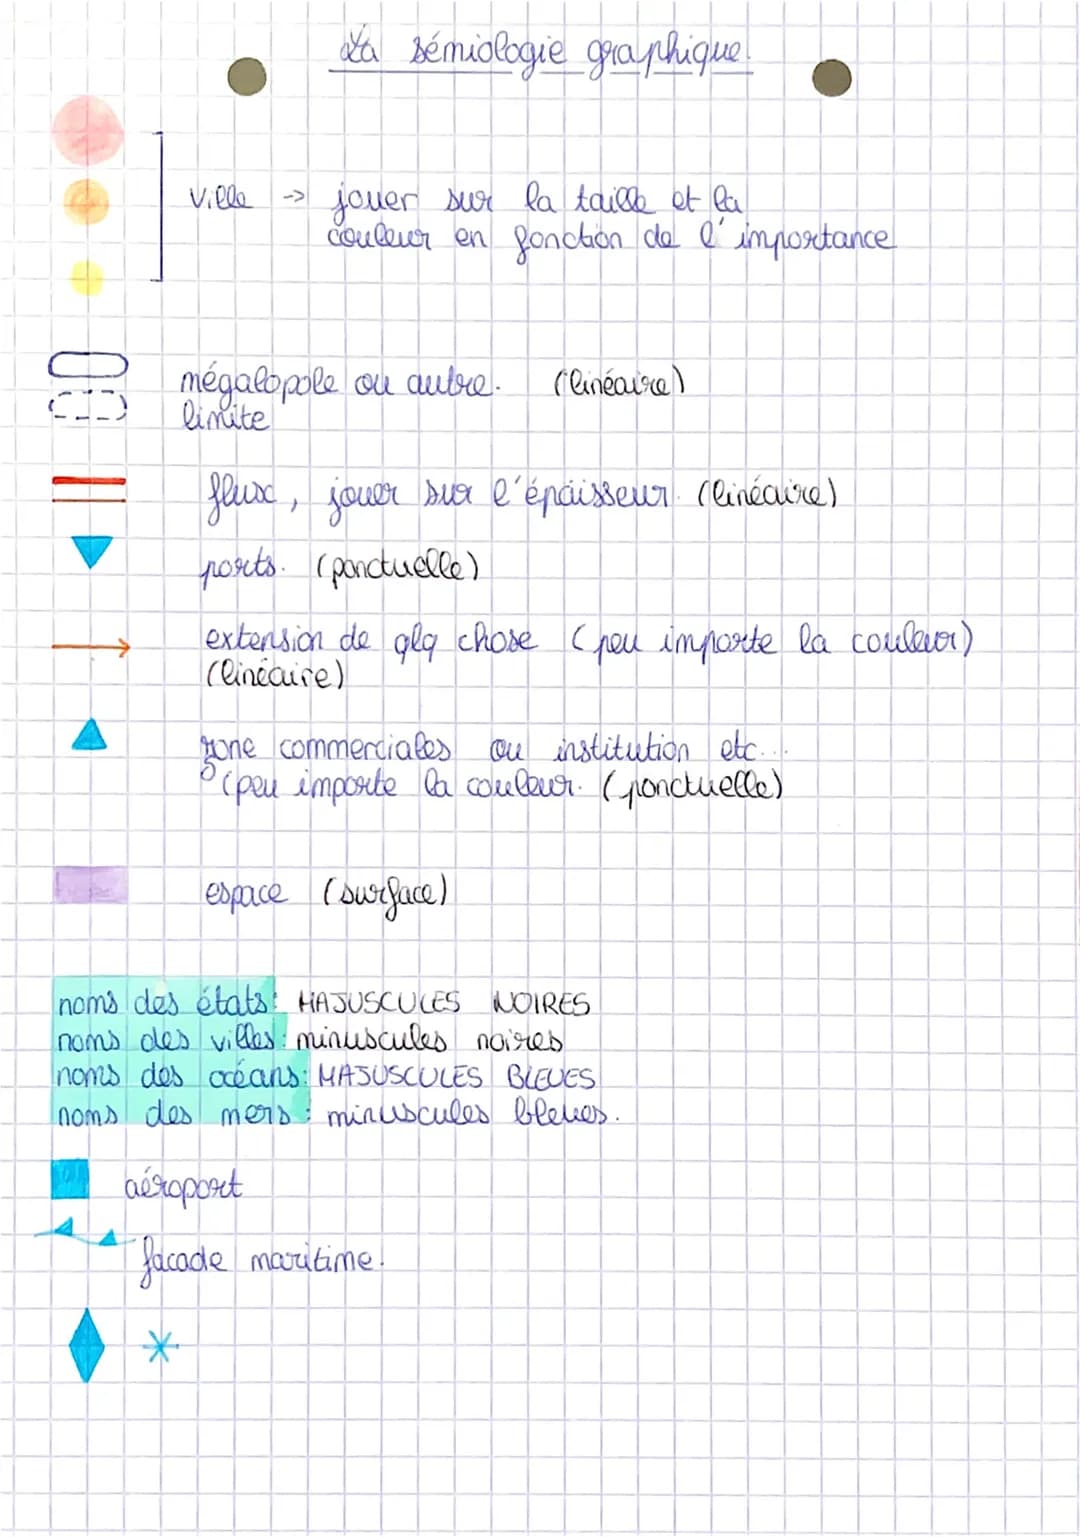 La sémiologie graphique.
ville -> jouer sur la taille et la
couleur en fonction de l'importance
mégalopole ou autre. (linéaire)
limite
flux, jouer sur l'épaisseur. (linéaire)
ports. (ponctuelle)
extension de qlq chose (peu importe la couleur)
(linéaire)
zone commerciales ou institution etc...
(peu importe la couleur. (ponctuelle)
espace (surface)
noms des états: MAJUSCULES NOIRES
noms des villes: minuscules noires
noms des océans: MAJUSCULES BLEUES
noms des mers: minuscules bleues.
aéroport
facade maritime.